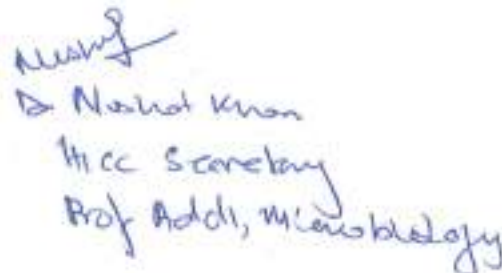 Dr Nashat Khan
HICC Secretary
Prof Addl, Microbiology